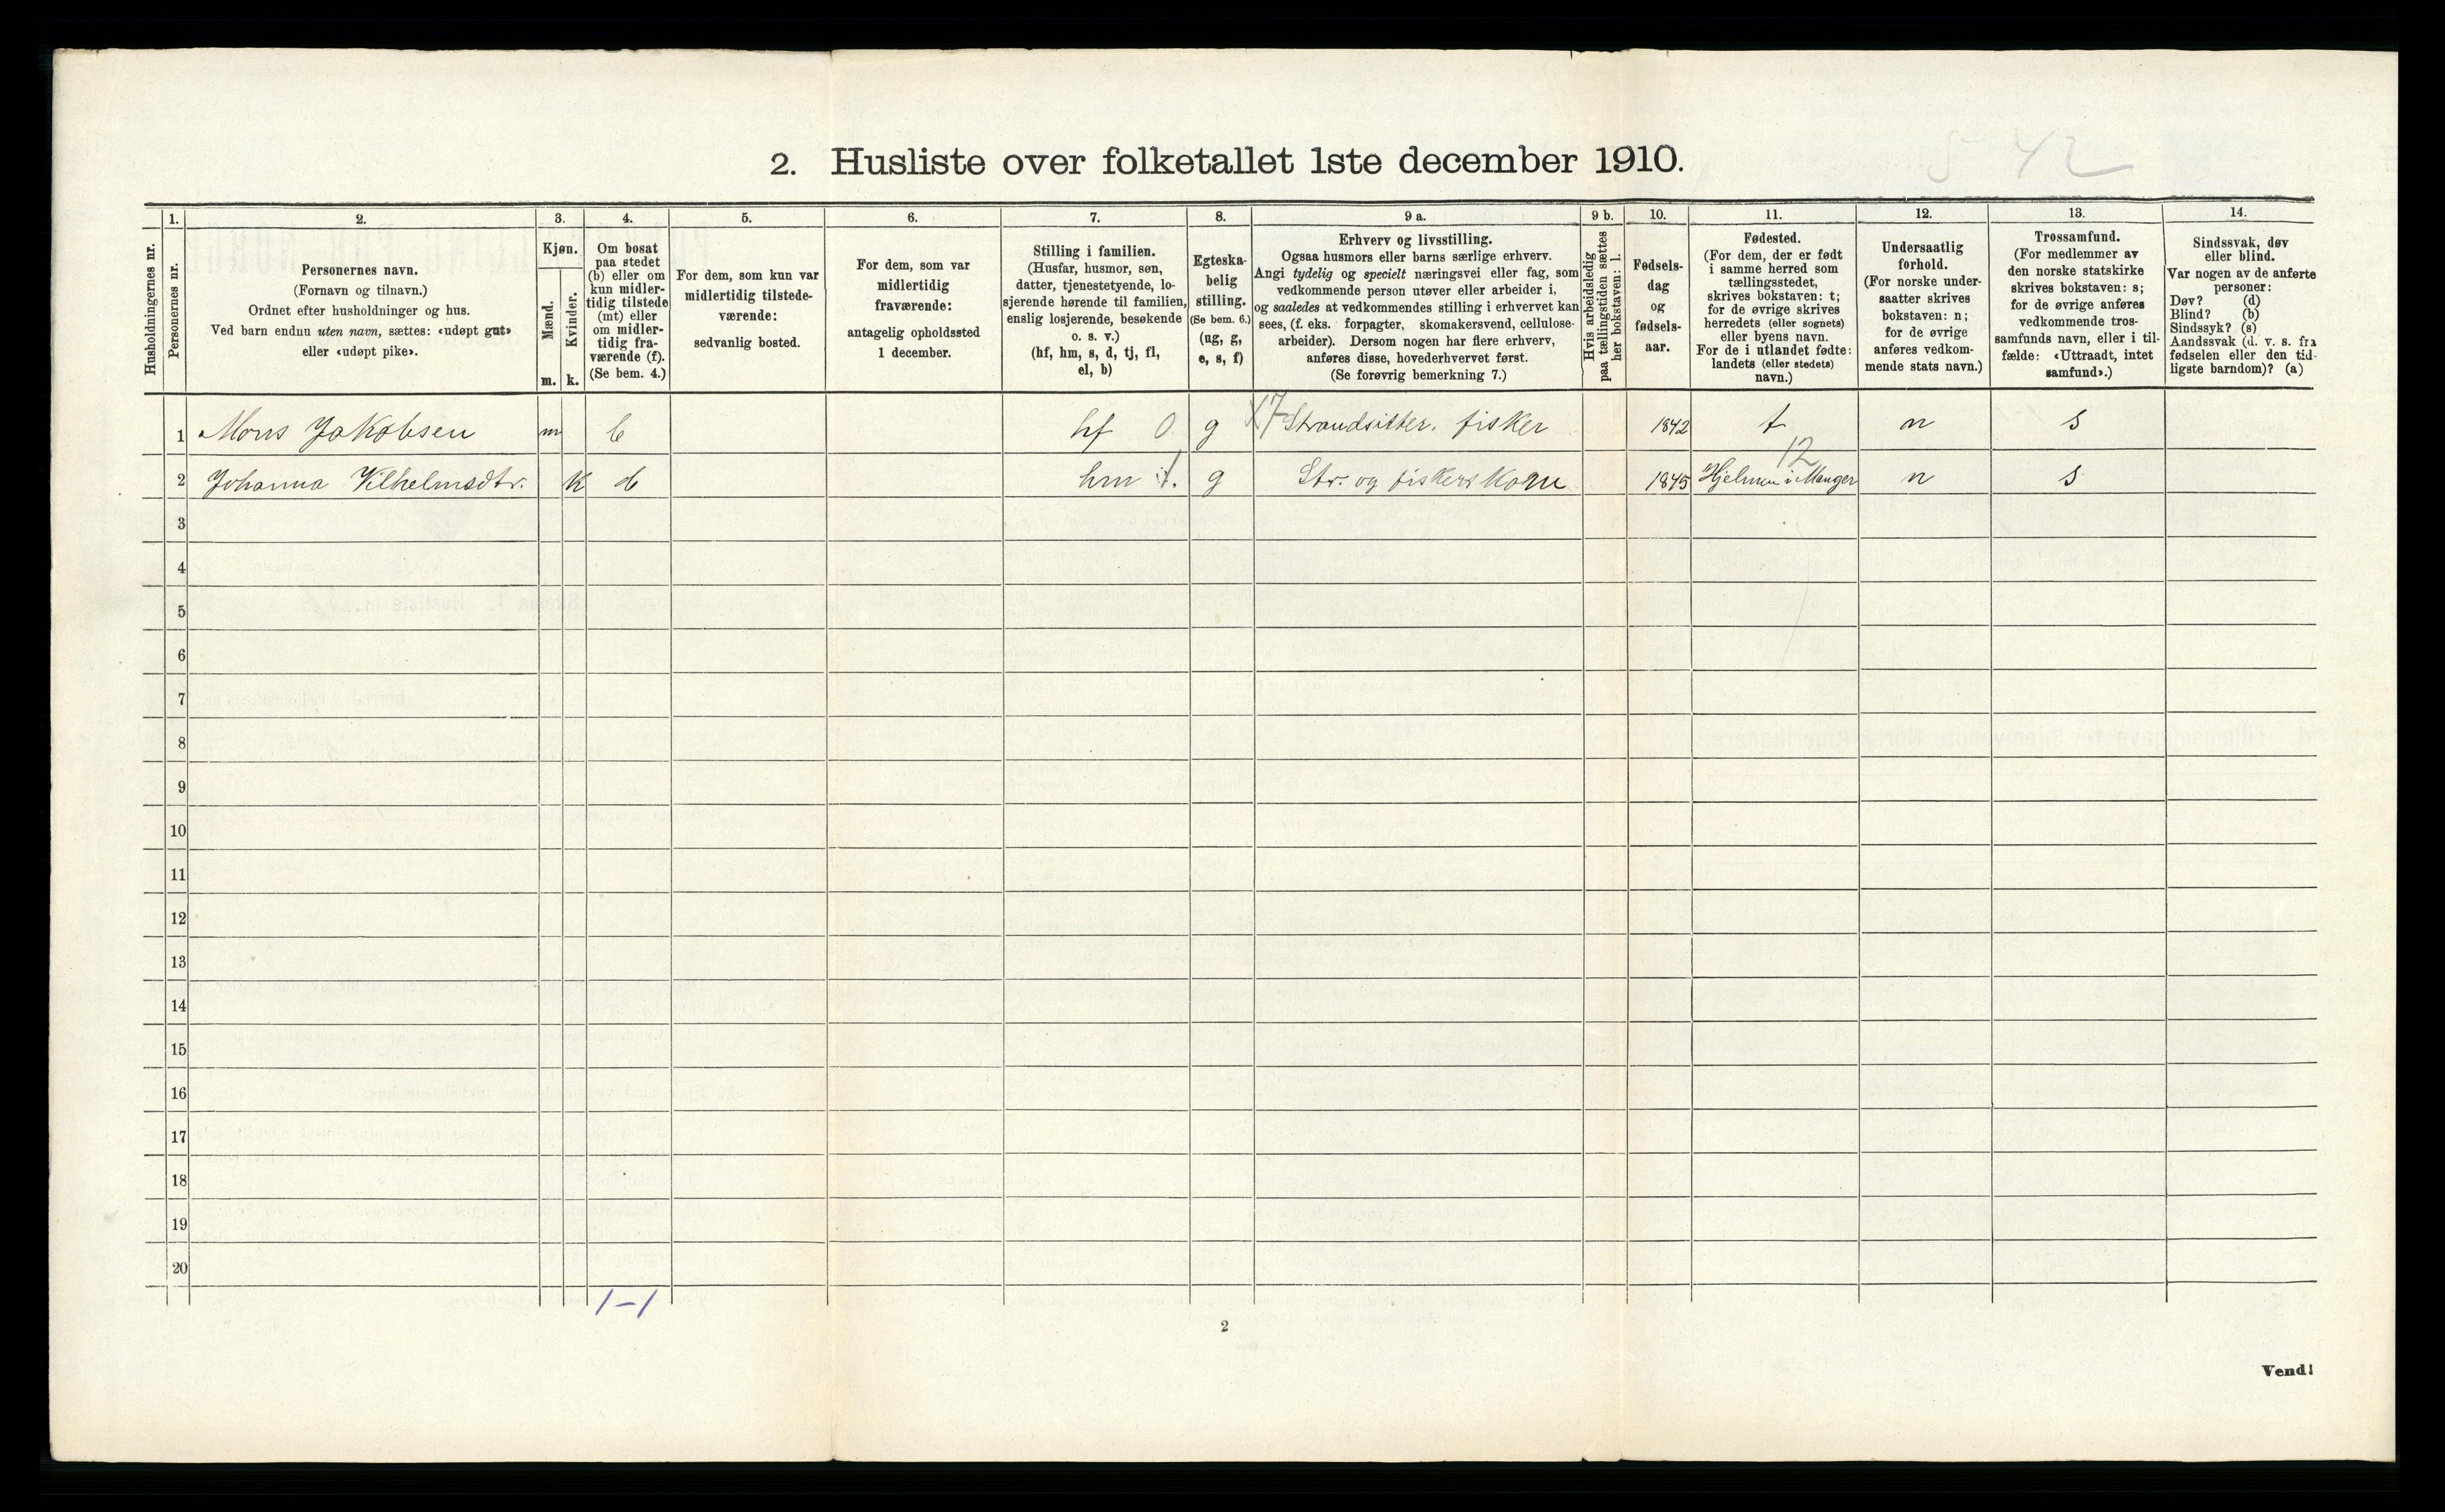 5 42
2. Husliste over folketallet 1ste december 1910.
Husholdningernes nr.
1.
Personernes nr.
2.
Personernes navn.
(Fornavn og tilnavn.)
Ordnet efter husholdninger og hus.
Ved barn endnu uten navn, sættes: «udøpt gut»
eller «udøpt pike».
3.
Kjøn.
Mænd.
Kvinder.
m. k.
4.
Om bosat
paa stedet
(b) eller om
kun midler-
tidig tilstede
(mt) eller
om midler-
tidig fra-
værende (f).
(Se bem. 4.)
5.
For dem, som kun var
midlertidig tilstede-
værende:
sedvanlig bosted.
6.
For dem, som var
midlertidig
fraværende:
antagelig opholdssted
1 december.
7.
Stilling i familien.
(Husfar, husmor, søn,
datter, tjenestetyende, lo-
sjerende hørende til familien,
enslig losjerende, besøkende
o. s. v.)
(hf, hm, s, d, tj, fl,
el, b)
8.
Egteska-
belig
stilling.
(Se bem. 6.)
(ug, g,
e, s, f)
9 a.
Erhverv og livsstilling.
Ogsaa husmors eller barns særlige erhverv.
Angi tydelig og specielt næringsvei eller fag, som
vedkommende person utøver eller arbeider i,
og saaledes at vedkommendes stilling i erhvervet kan
sees, (f. eks. forpagter, skomakersvend, cellulose-
arbeider). Dersom nogen har flere erhverv,
anføres disse, hovederhvervet først.
(Se forøvrig bemerkning 7.)
9 b.
Hvis arbeidsledig
paa tællingstiden sættes
her bokstaven: l.
10.
Fødsels-
dag
og
fødsels-
aar.
11.
Fødested.
(For dem, der er født
i samme herred som
tællingsstedet,
skrives bokstaven: t;
for de øvrige skrives
herredets (eller sognets)
eller byens navn.
For de i utlandet fødte:
landets (eller stedets)
navn.)
12.
Undersaatlig
forhold.
(For norske under-
saatter skrives
bokstaven: n;
for de øvrige
anføres vedkom-
mende stats navn.)
13.
Trossamfund.
(For medlemmer av
den norske statskirke
skrives bokstaven: s;
for de øvrige anføres
vedkommende tros-
samfunds navn, eller i til-
fælde: «Uttraadt, intet
samfund».)
14.
Sindssvak, døv
eller blind.
Var nogen av de anførte
personer:
Døv? (d)
Blind? (b)
Sindssyk? (s)
Aandssvak (d. v. s. fra
fødselen eller den tid-
ligste barndom)? (a)
1 Mons Jakobsen m b hf 0 g X7 Strandsitter, fisker 1842 t n s
12
2 Johanna Vilhelmsdtr. k b hm 1. g Str. og fiskers kone 1845 Hjelmen i Manger n s
3
4
5
6
7
8
9
10
11
12
13
14
15
16
17
18
19
20
1-1
2
Vend!